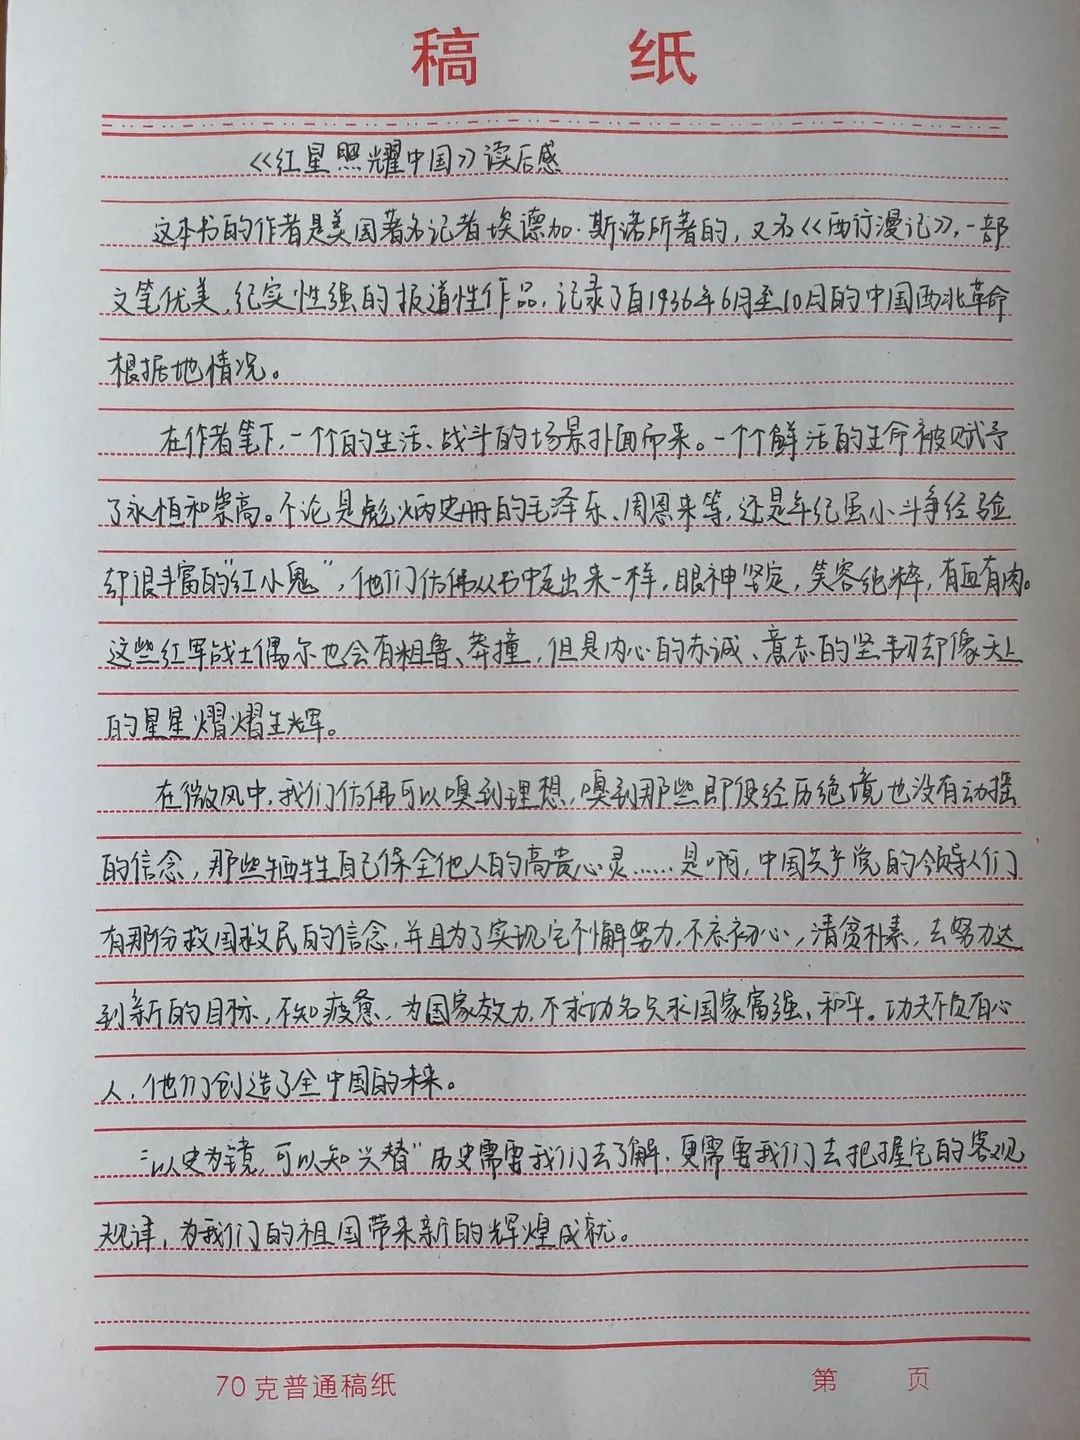 稿 纸
《红星照耀中国》读后感
这本书的作者是美国著名记者埃德加·斯诺所著的，又名《西行漫记》，一部
文笔优美，纪实性强的报道性作品，记录了自1936年6月至10月的中国西北革命
根据地情况。
在作者笔下，一个个的生活、战斗的场景扑面而来。一个个鲜活的生命被赋予
了永恒和崇高。不论是彪炳史册的毛泽东、周恩来等，还是年纪虽小斗争经验
却很丰富的“红小鬼”，他们仿佛从书中走出来一样，眼神坚定，笑容纯粹，有血有肉。
这些红军战士偶尔也会有粗鲁、莽撞，但是内心的赤诚、意志的坚韧却像天上
的星星熠熠生辉。
在微风中，我们仿佛可以嗅到理想，嗅到那些即便经历绝境也没有动摇
的信念，那些牺牲自己保全他人的高贵心灵……是啊，中国共产党的领导人们
有那份救国救民的信念，并且为了实现它不懈努力，不忘初心，清贫朴素，去努力达
到新的目标，不知疲惫，为国家效力，不求功名只求国家富强、和平。功夫不负有心
人，他们创造了全中国的未来。
“以史为镜，可以知兴替”历史需要我们去了解，更需要我们去把握它的客观
规律，为我们的祖国带来新的辉煌成就。
70克普通稿纸 第 页